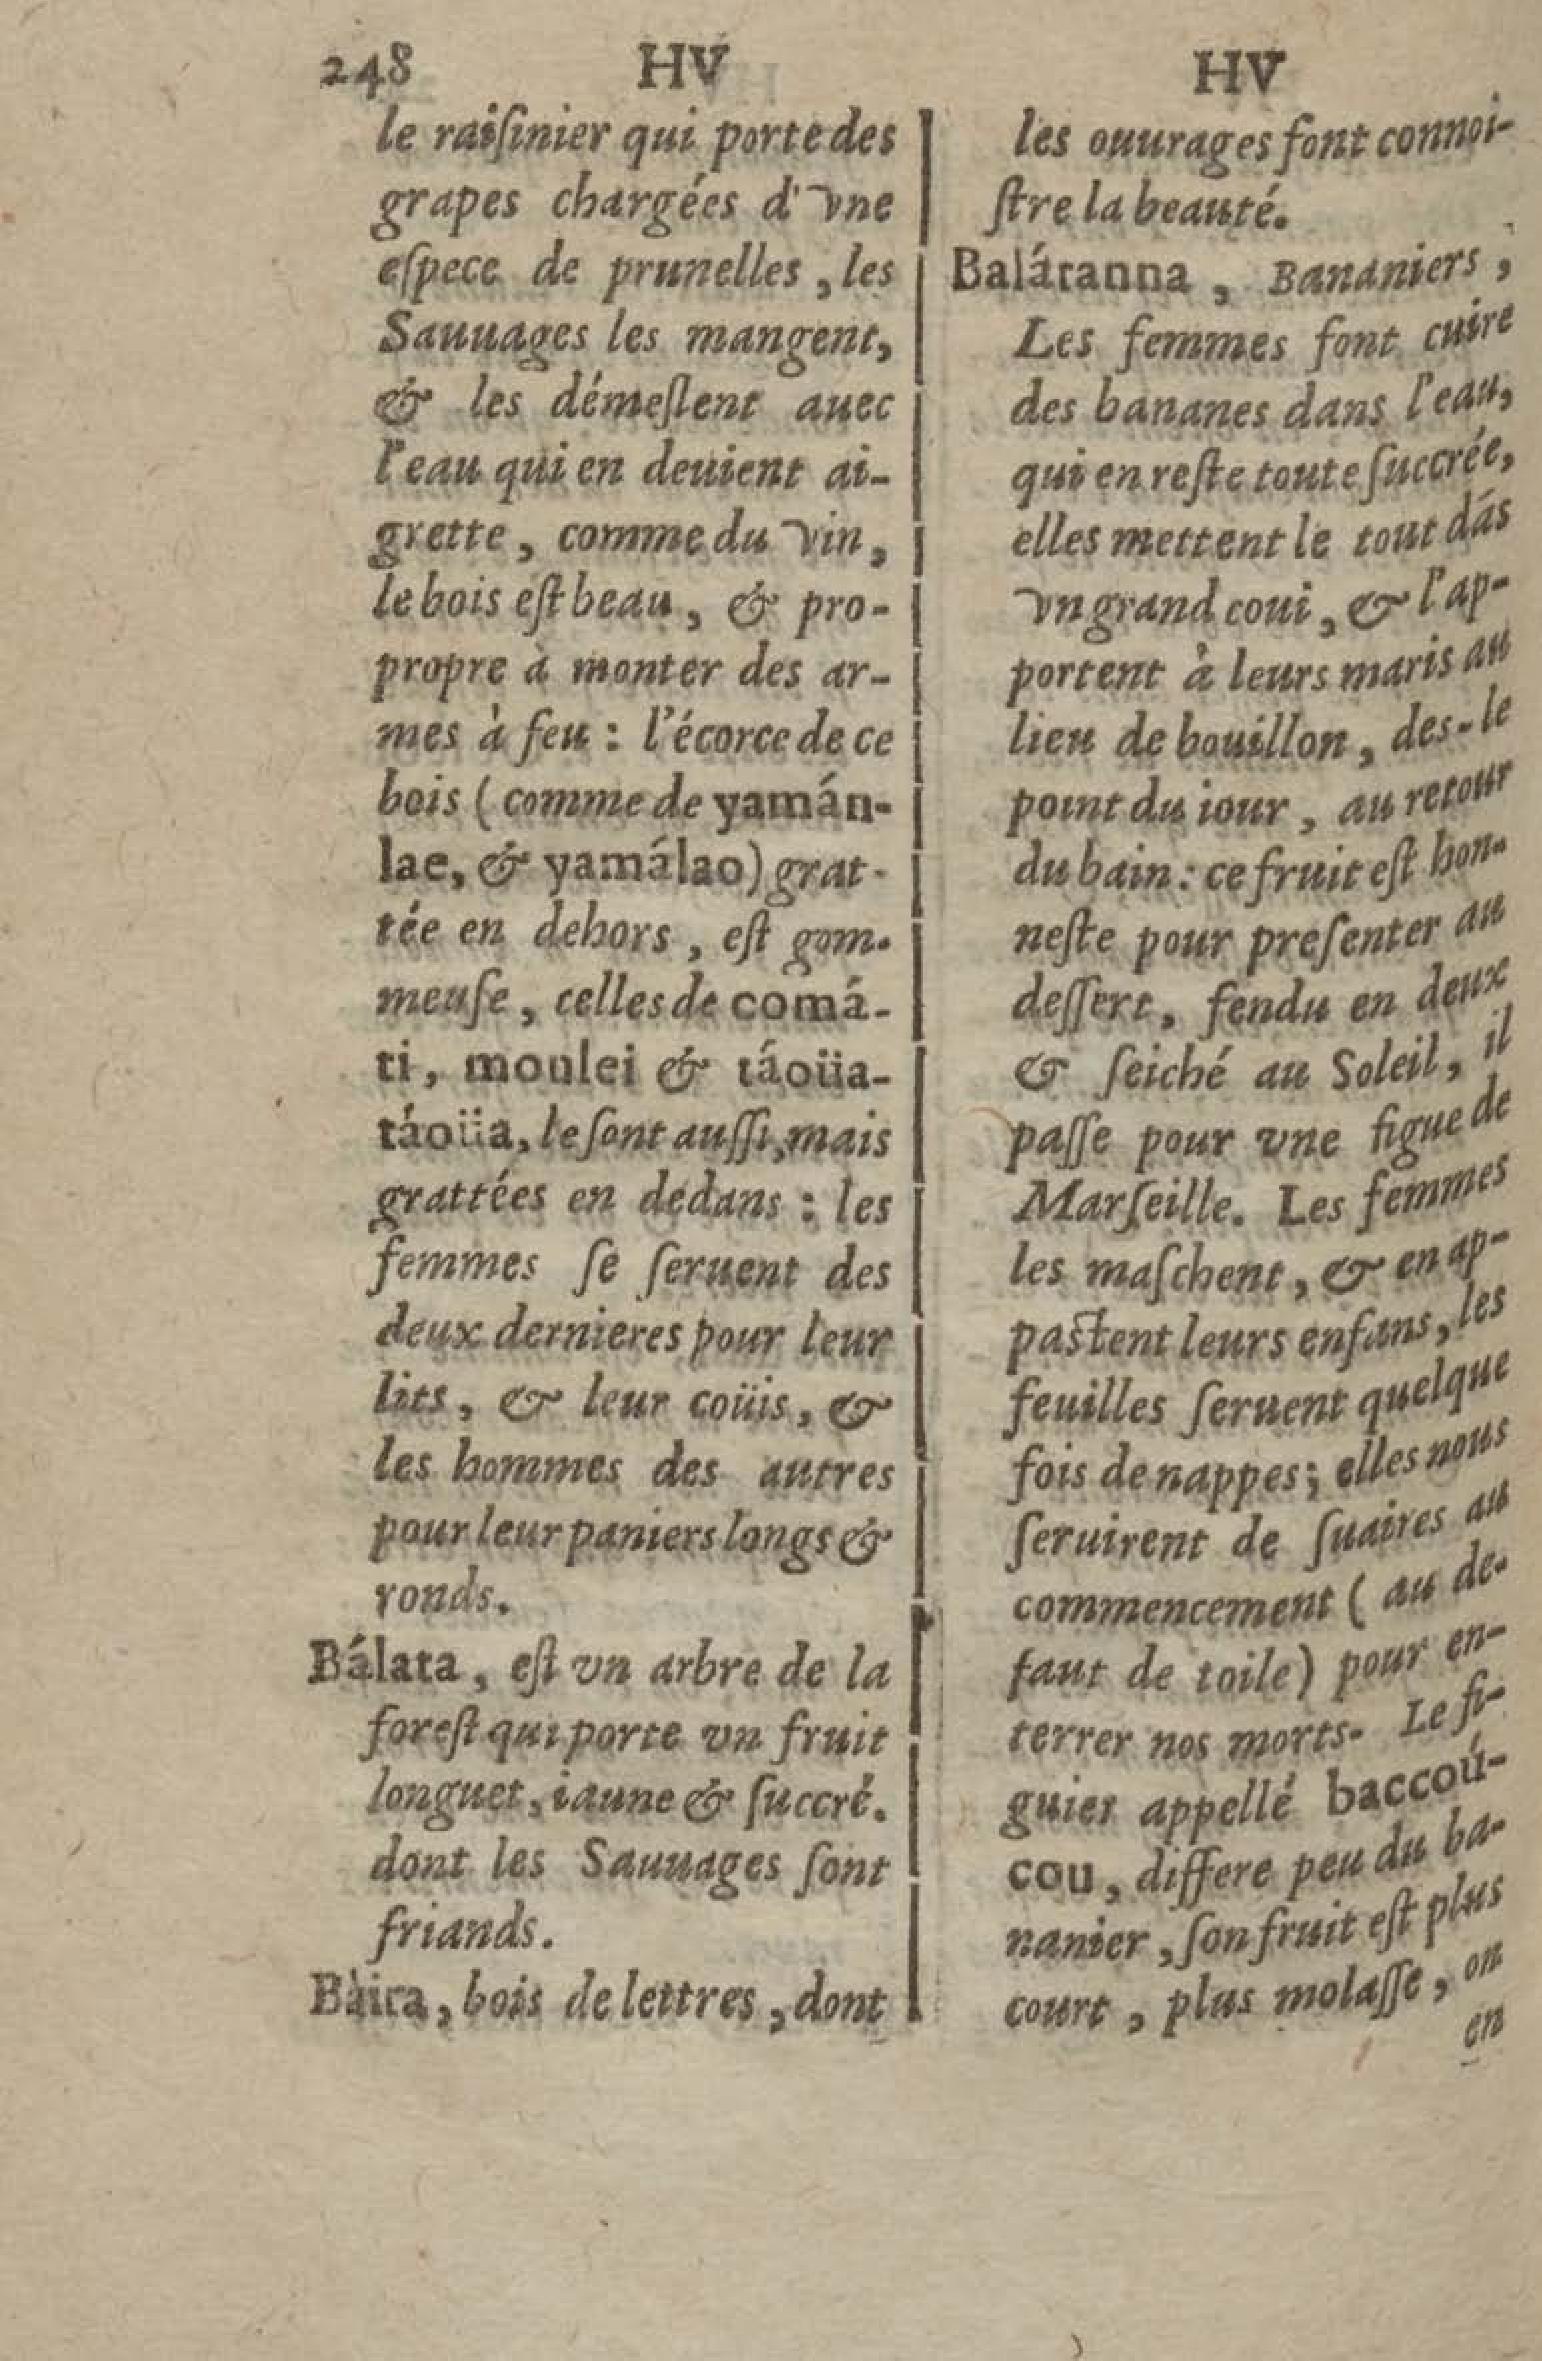 248 HV HV
le raiſinier qui porte des
grapes chargées d'vne
eſpece de prunelles, les
Sauuages les mangent,
& les démeſlent auec
l'eau qui en deuient ai-
grette, comme du vin,
le bois eſt beau, & pro-
propre à monter des ar-
mes à feu : l'écorce de ce
bois (comme de yamán-
lae, & yamálao) grat-
tée en dehors, eſt gom-
meuſe, celles de comá-
ti, moulei & táoüa-
táoüa, le ſont auſſi, mais
grattées en dedans : les
femmes ſe ſeruent des
deux dernieres pour leur
lits, & leur coüis, &
les hommes des autres
pour leur paniers longs &
ronds.
Bálata, eſt vn arbre de la
foreſt qui porte vn fruit
longuet, iaune & ſuccré.
dont les Sauuages ſont
friands.
Bàira, bois de lettres, dont
les ouurages font connoi-
ſtre la beauté.
Baláranna, Bananiers,
Les femmes font cuire
des bananes dans l'eau,
qui en reſte toute ſuccrée,
elles mettent le tout dás
vn grand coui, & l'ap-
portent à leurs maris au
lieu de bouillon, des-le
point du iour, au retour
du bain : ce fruit eſt hon-
neſte pour preſenter au
deſſert, fendu en deux
& ſeiché au Soleil, il
paſſe pour vne figue de
Marſeille. Les femmes
les maſchent, & en ap-
paſtent leurs enfans, les
feuilles ſeruent quelque
fois de nappes; elles nous
ſeruirent de ſuaires au
commencement ( au de-
faut de toile) pour en-
terrer nos morts. Le fi-
guier appellé baccoú-
cou, differe peu du ba-
nanier, ſon fruit eſt plus
court, plus molaſſe, on
en